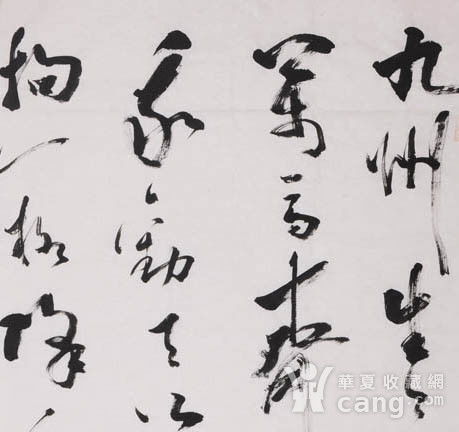 九州生气
萬馬齊
我勸天公
拘一格降
華夏收藏網
cang.com